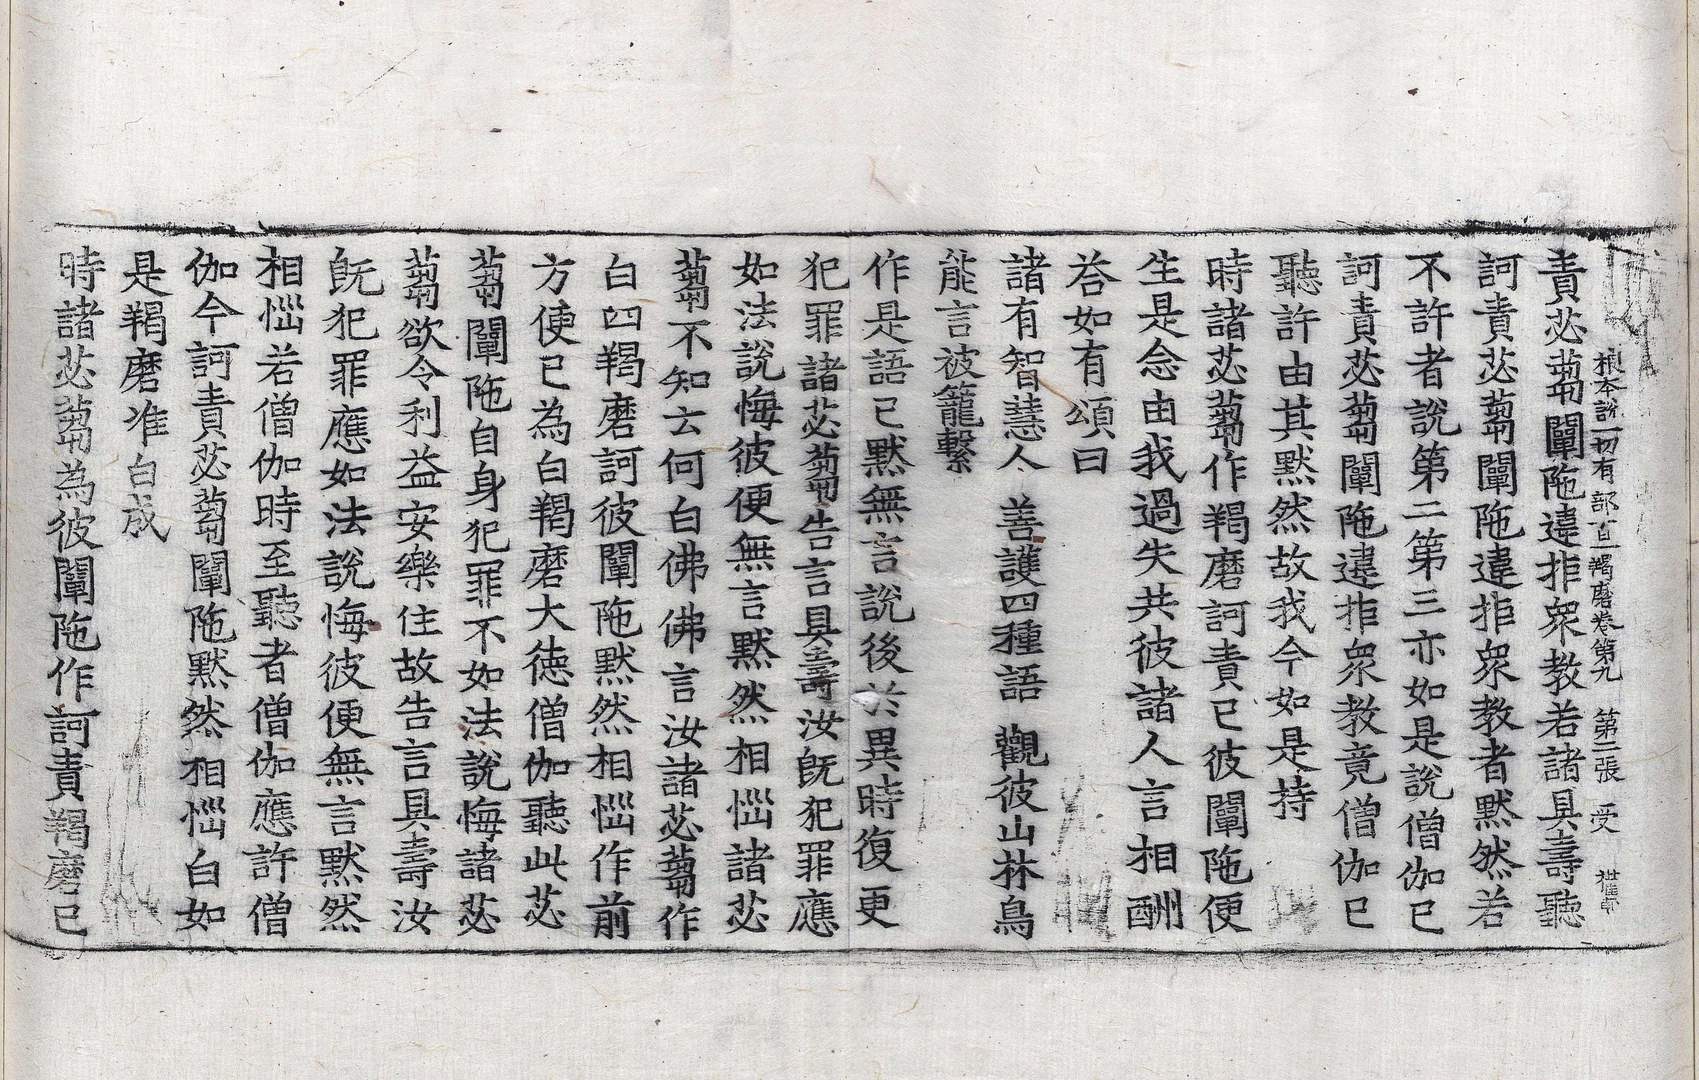 根本說一切有部百一羯磨卷第九 第二張 受
責苾蒭闡陁違拒衆教若諸具壽聽
訶責苾蒭闡陁違拒衆教者黙然若
不許者說第二第三亦如是說僧伽已
訶責苾蒭闡陁違拒衆教竟僧伽已
聽許由其黙然故我今如是持
時諸苾蒭作羯磨訶責已彼闡陁便
生是念由我過失共彼諸人言相酬
荅如有頌曰
諸有智慧人 善護四種語 觀彼山林鳥
能言被籠繫
作是語已黙無言說後於異時復更
犯罪諸苾蒭告言具壽汝旣犯罪應
如法說悔彼便無言黙然相惱諸苾
蒭不知云何白佛佛言汝諸苾蒭作
白四羯磨訶彼闡陁黙然相惱作前
方便已為白羯磨大德僧伽聽此苾
蒭闡陁自身犯罪不如法說悔諸苾
蒭欲令利益安樂住故告言具壽汝
旣犯罪應如法說悔彼便無言黙然
相惱若僧伽時至聽者僧伽應許僧
伽今訶責苾蒭闡陁黙然相惱白如
是羯磨准白成
時諸苾蒭為彼闡陁作訶責羯磨已